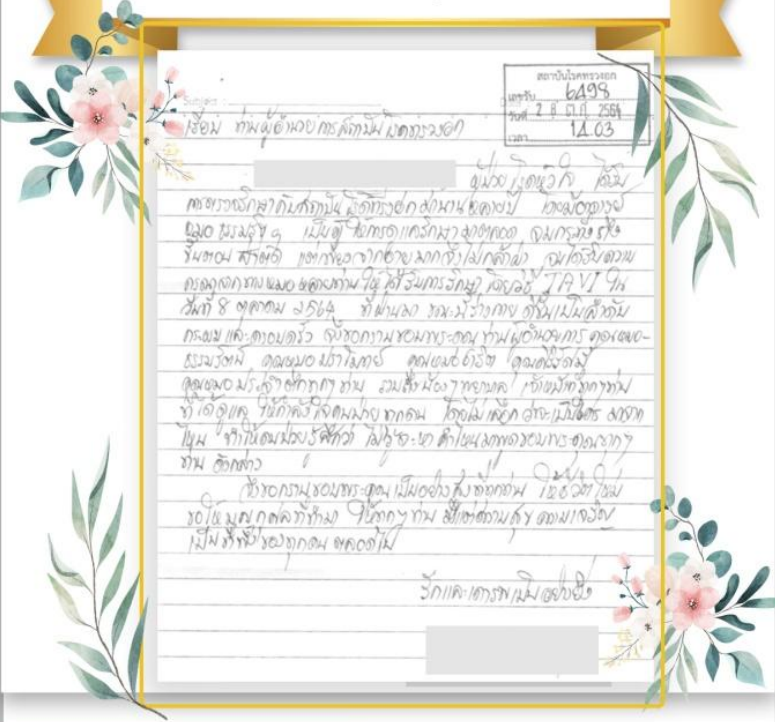 สถาบันโรคทรวงอก
เลขรับ 6498
วันที่ 2 8 ต.ค. 2564
เวลา 14.03
Subject :
เรียน ท่านผู้อำนวยการสถาบันโรคทรวงอก
ผู้ป่วยโรคหัวใจ ได้รับ
การตรวจรักษากับสถาบันโรคทรวงอกมานานหลายปี โดยมีอาจารย์
หมอ เป็นผู้ให้การดูแลรักษามาตลอด จนกระทั่งถึง
ขั้นตอนผ่าตัด แต่เนื่องจากอายุมากจึงไม่กล้าผ่า จนได้รับความ
กรุณาจากทางหมอหลายท่านให้ได้รับการรักษาโดยวิธี TAVI ใน
วันที่ 8 ตุลาคม 2564 ที่ผ่านมา ขณะนี้ร่างกายดีขึ้นเป็นลำดับ
กระผมและครอบครัว จึงขอกราบขอบพระคุณ ท่านผู้อำนวยการ คุณหมอ-
ธรรมรัตน์ คุณหมอปราโมทย์ คุณหมอ
คุณหมอประจำตึกทุกๆท่าน รวมถึงน้องๆพยาบาล เจ้าหน้าที่ทุกๆท่าน
ที่ได้ดูแล ให้กำลังใจคนป่วยทุกคน โดยไม่เลือกว่าจะเป็นใคร มาจาก
ไหน ทำให้คนป่วยรู้สึกว่า ไม่รู้จะหาคำไหนมาพูดขอบพระคุณทุกๆ
ท่าน ดังกล่าว
จึงขอกราบขอบพระคุณเป็นอย่างสูงที่ทุกท่าน ให้ชีวิตใหม่
ขอให้บุญกุศลที่ทำมา ให้ทุกๆท่าน มีแต่ความสุข ความเจริญ
เป็นที่พึ่งของทุกคน ตลอดไป
รักและเคารพเป็นอย่างยิ่ง